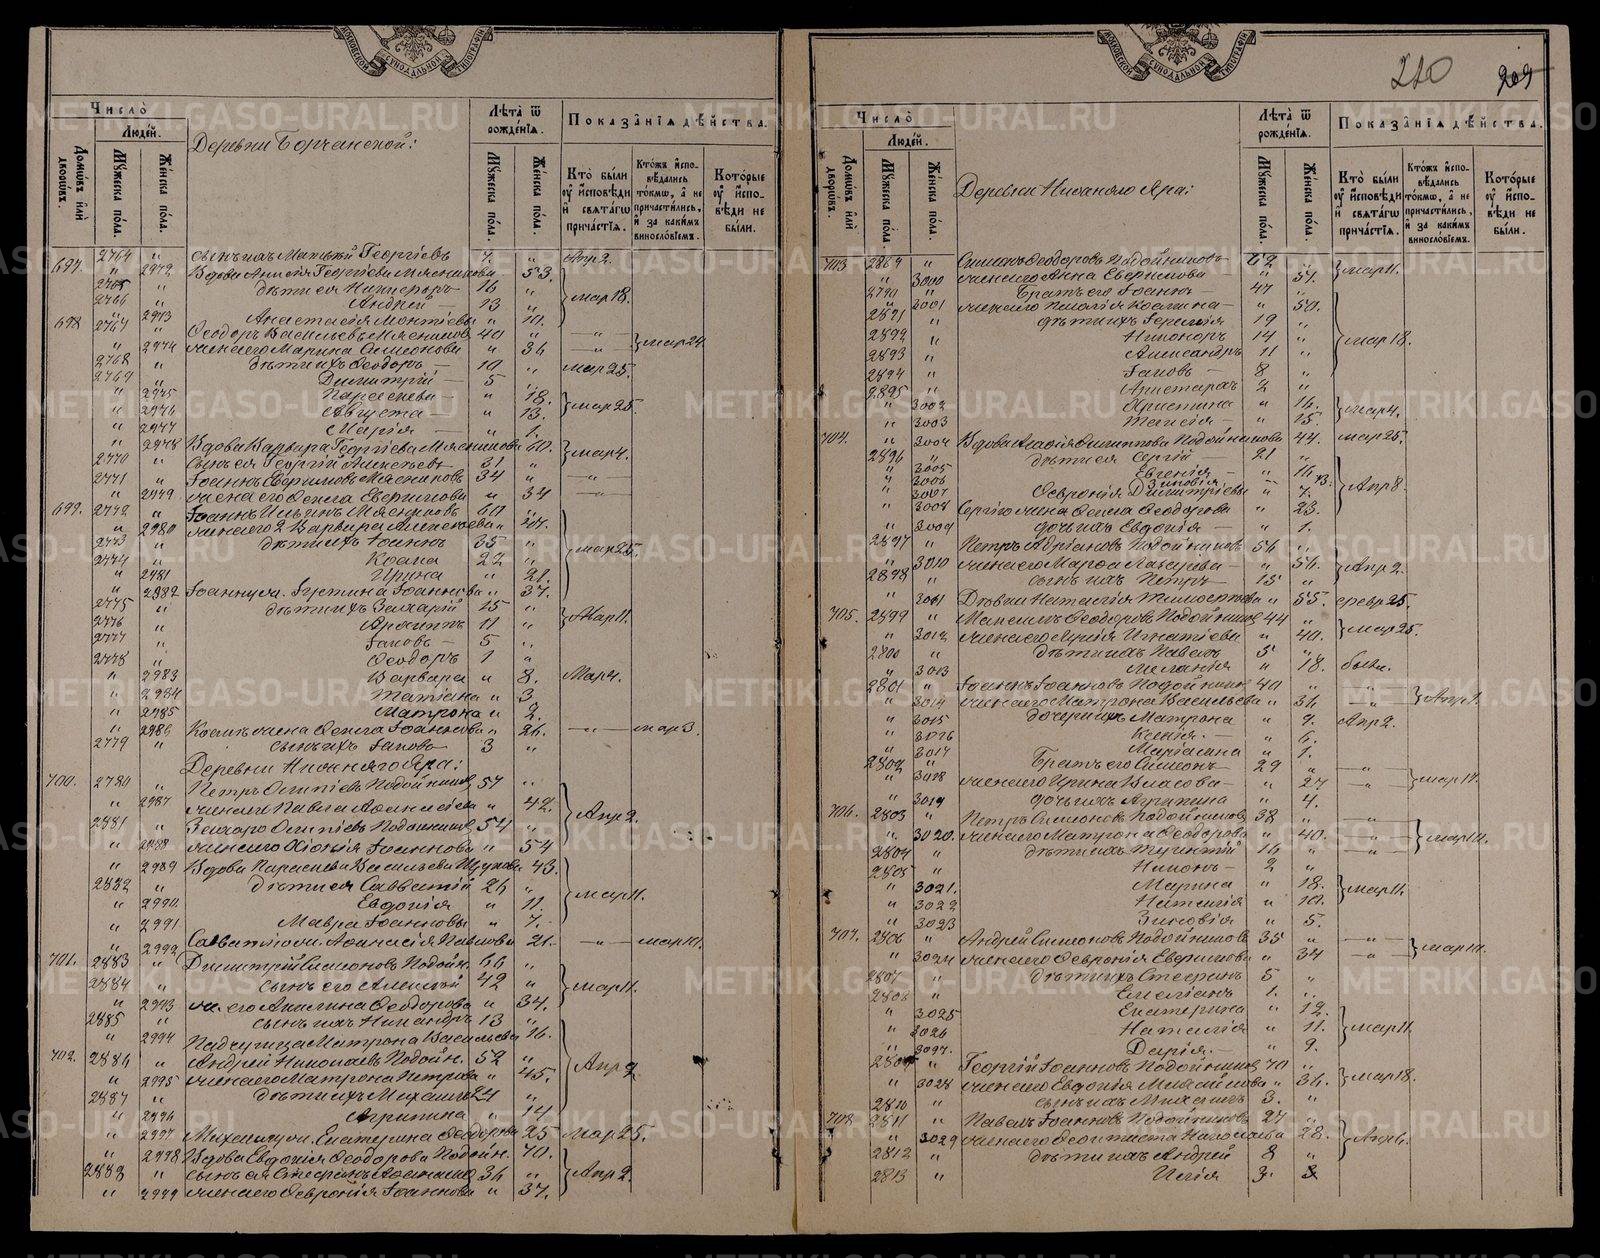 Число̀
Людéй.
Домѡвъ и҆лѝ дворѡвъ.
Мꙋжеска по́ла.
Же́нска по́ла.
Деревни Борчанской:
Лѣ̑та ѿ рожде́нїѧ.
Мꙋжеска по́ла.
Же́нска по́ла.
Показа̑нїѧ дѣ́йства.
Кто̀ бы́ли ᲂу҆ и҆сповѣди и҆ свѧта́гѡ прича́стїѧ.
Кто́жъ и҆сповѣ́дались то́кмѡ, а҆ не причасти́лись, и҆ за каки́мъ винослѡ́вїемъ.
Кото́рые ᲂу҆ и҆сповѣди не бы́ли.
2764 " сынъ ихъ Матвѣй Георгіевъ 7. " Апр 2.
697. " 2972 Вдова Анисія Георгіева Мясникова " 53.
2765 " дѣти ея Никифоръ 16 "
2766 " Андрей 13 " мар 18.
" 2973 Анастасія " 10.
698 2767 " Ѳеодоръ Васильевъ Мясниковъ 40 "
" 2974 жена его Марина Симонова " 36 мар 24.
2768 " дѣти ихъ Ѳеодоръ 10 " мар 25.
2769 " Димитрій 5 "
" 2975 Параскева " 18.
" 2976 Августа " 13. мар 25.
" 2977 Марія " 1.
" 2978 Вдова Варвара Георгіева Мясникова 60.
2770 " сынъ ея Георгій Алексѣевъ 31 " мар 4.
2771 " Іоаннъ Ефремовъ Мясниковъ 34 "
" 2979 жена его Ѳекла " 34
699. 2772 " Іоаннъ Ильинъ Мясниковъ 60 "
" 2980 жена его 2 Варвара Алексѣева "
2773 " дѣти ихъ Іоаннъ 35 " мар 25.
2774 " Козма 22 "
" 2981 Ирина " 21.
" 2982 Іустина Іоаннова " 37.
2775 " дѣти ихъ Захарій 15 "
2776 " Архиппъ 11 " Мар 11.
2777 " Іаковъ 5 "
2778 " Ѳеодоръ 1 "
" 2983 Варвара " 8. Мар 4.
" 2984 Татіана " 3
" 2985 Матрона " 2.
" 2986 Козмы жена Ѳекла Іоаннова " 26. мар 3.
2779 " сынъ ихъ Іаковъ 3 "
Деревни Нижняго Яра:
700. 2780 " Петръ Осиповъ Подойниковъ 57 "
" 2987 жена его Павла Аѳанасіева " 42.
2881 " Захаръ Осиповъ Подойниковъ 54 " Апр 2.
" 2988 жена его Хіонія Іоаннова " 54
" 2989 Вдова Параскева Васильева Щукова 43.
2882 " дѣти ея Савватій 26 "
" 2990 Евдокія " 11. мар 11.
" 2991 Мавра Іоаннова " 7.
" 2992 Савватія жена Аѳанасія Павлова 21. мар 10.
701. 2883 " Димитрій Симоновъ Подойн. 66 "
2884 " сынъ его Алексѣй 42 " мар 11.
" 2993 ж. его Акилина Ѳеодорова " 34.
2885 " сынъ ихъ Никандръ 13 "
" 2994 Падчерица Матрона Васильева 16.
702. 2886 " Андрей Николаевъ Подойн. 52 "
" 2995 жена его Матрона Петрова " 45. Апр 9.
2887 " дѣти ихъ Михаилъ 24 "
" 2996 Агрипина " 14
" 2997 Михаила жен. Екатерина Ѳедорова 25 Мар 25.
" 2998 Вдова Евдокія Ѳеодорова Подойн. 70.
2888 " сынъ ея Стефанъ 36 " Апр 2.
" 2999 жена его Ѳевронія Іоаннова " 37.
210 209
Число̀
Людéй.
Домѡвъ и҆лѝ дворѡвъ.
Мꙋжеска по́ла.
Же́нска по́ла.
Деревни Нижняго Яра:
Лѣ̑та ѿ рожде́нїѧ.
Мꙋжеска по́ла.
Же́нска по́ла.
Показа̑нїѧ дѣ́йства.
Кто̀ бы́ли ᲂу҆ и҆сповѣди и҆ свѧта́гѡ прича́стїѧ.
Кто́жъ и҆сповѣ́дались то́кмѡ, а҆ не причасти́лись, и҆ за каки́мъ винослѡ́вїемъ.
Кото́рые ᲂу҆ и҆сповѣди не бы́ли.
703 2889 " Симонъ Ѳеодоровъ Подойниковъ 62 "
" 3000 жена его Анна Ефремова " 57. мар 11.
2890 " Братъ его Іоаннъ 47 "
" 3001 жена его Пелагія Козмина " 50.
2891 " дѣти ихъ Іеремія 19 "
2892 " Никоноръ 14 " мар 18.
2893 " Александръ 11 "
2894 " Іаковъ 8 "
2895 " Аристархъ 2 "
" 3002 Христина " 16. мар 4.
" 3003 Таисія " 15.
704. " 3004 Вдова Агафія Филиппова Подойникова 44. мар 25.
2896 " дѣти ея Сергій 21 "
" 3005 Евгенія " 16
" 3006 Зиновія " 13.
" 3007 Ѳевронія Димитріева " 7. Апр 8.
" 3008 Сергія жена Ѳекла Ѳеодорова " 23.
" 3009 дочь ихъ Евдокія " 1.
2897 " Петръ Адріановъ Подойниковъ 56 "
" 3010 жена его Марѳа " 56. Апр 2.
2898 " сынъ ихъ Петръ 15 "
" 3011 Дѣвка Наталія Тимоѳеева " 55. февр 25.
705. 2899 " Максимъ Ѳеодоровъ Подойниковъ 44 "
" 3012 жена его Лукія Игнатіева " 40. мар 25.
2800 " дѣти ихъ Павелъ 5 "
" 3013 Меланія " 18. больн.
2801 " Іоаннъ Іоанновъ Подойник. 40 "
" 3014 жена его Матрона Васильева " 36 Апр 1.
" 3015 дочери ихъ Матрона " 9. Апр 2.
" 3016 Ксенія " 6.
" 3017 Маріамна " 1.
2802 " Братъ его Симеонъ 29 "
" 3018 жена его Ирина Власова " 27 мар 17.
" 3019 дочь ихъ Агрипина " 4.
706. 2803 " Петръ Симоновъ Подойниковъ 38 "
" 3020. жена его Матрона Ѳеодорова " 40. мар 10.
2804 " дѣти ихъ 16 "
2805 " Никонъ 2 "
" 3021. Марина " 18. мар 11.
" 3022 Наталія " 10.
" 3023 Зиновія " 5.
707. 2806 " Андрей Симоновъ Подойников. 35 "
" 3024 жена его Ѳевронія Евдокимова " 34 мар 10.
2807 " дѣти ихъ Стефанъ 5 "
2808 " Емеліанъ 1. "
" 3025 Екатерина " 12.
" 3026 Наталія " 11. мар 11.
" 3027. Дарія " 9.
2809 " Георгій Іоанновъ Подойников. 70 "
" 3028 жена его Евдокія Михайлова " 36. мар 18.
2810 " сынъ ихъ Михаилъ 3. "
708. 2811 " Павелъ Іоанновъ Подойниковъ 27 "
" 3029 жена его Ѳеоктиста Николаева 28. Апр 6.
2812 " дѣти ихъ Андрей 8 "
2813 " Илія 3.
METRIKI.GASO-URAL.RU